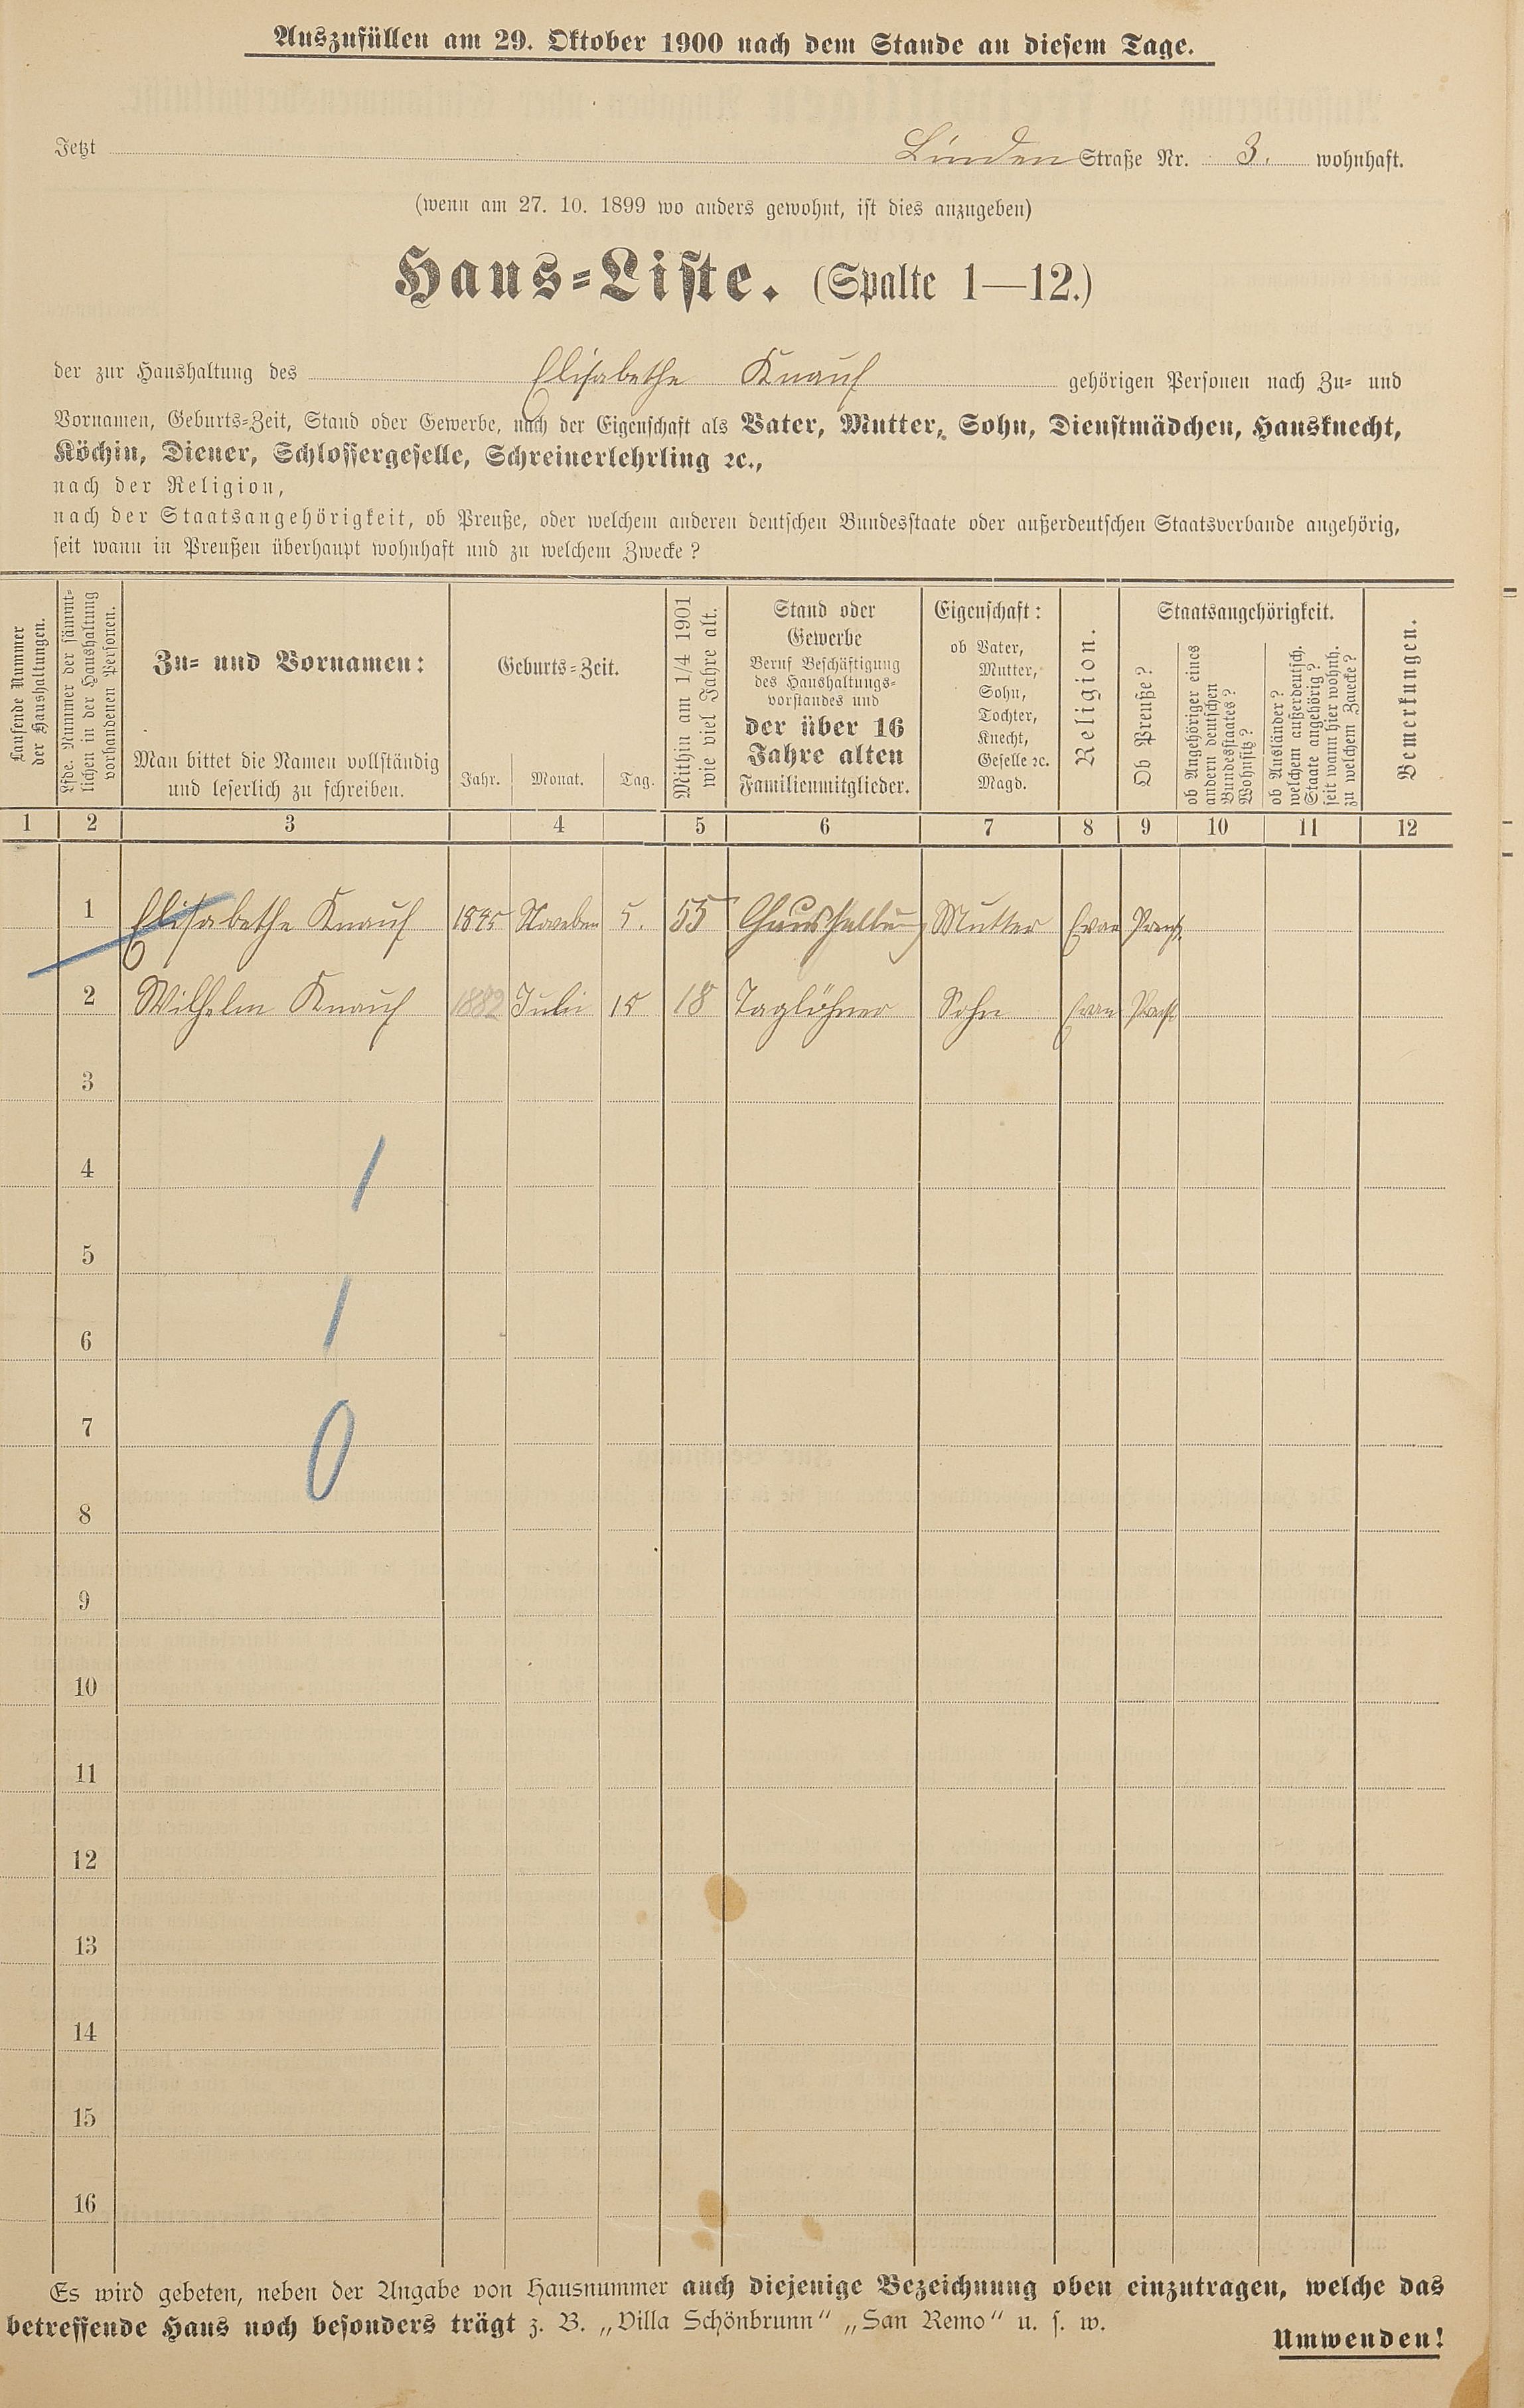 Auszufüllen am 29. Oktober 1900 nach dem Stande an diesem Tage.
Jetzt Linden Straße Nr. 3. wohnhaft.
(wenn am 27. 10. 1899 wo anders gewohnt, ist dies anzugeben)
Haus-Liste. (Spalte 1—12.)
der zur Haushaltung des Elisabethe Knauf gehörigen Personen nach Zu- und
Vornamen, Geburts-Zeit, Stand oder Gewerbe, nach der Eigenschaft als Vater, Mutter, Sohn, Dienstmädchen, Hausknecht,
Köchin, Diener, Schlossergeselle, Schreinerlehrling ꝛc.,
nach der Religion,
nach der Staatsangehörigkeit, ob Preuße, oder welchem anderen deutschen Bundesstaate oder außerdeutschen Staatsverbande angehörig,
seit wann in Preußen überhaupt wohnhaft und zu welchem Zwecke?
Laufende Nummer
der Haushaltungen.
Lfde. Nummer der sämmt-
lichen in der Haushaltung
vorhandenen Personen.
Zu- und Vornamen:
Man bittet die Namen vollständig
und leserlich zu schreiben.
Geburts-Zeit.
Jahr. Monat. Tag.
Mithin am 1/4 1901
wie viel Jahre alt.
Stand oder
Gewerbe
Beruf Beschäftigung
des Haushaltungs-
vorstandes und
der über 16
Jahre alten
Familienmitglieder.
Eigenschaft:
ob Vater,
Mutter,
Sohn,
Tochter,
Knecht,
Geselle ꝛc.
Magd.
Religion.
Staatsangehörigkeit.
Ob Preuße?
ob Angehöriger eines
andern deutschen
Bundesstaates?
Wohnsitz?
ob Ausländer?
welchem außerdeutsch.
Staate angehörig?
seit wann hier wohnh.
zu welchem Zwecke?
Bemerkungen.
1 2 3 4 5 6 7 8 9 10 11 12
1 Elisabethe Knauf 1845 5. 55 Haushaltung Mutter Evan Preuß.
2 Wilhelm Knauf 1882 Juli 15 18 Taglöhner Sohn Evan Preuß
3
4 1
5
6 1
7 0
8
9
10
11
12
13
14
15
16
Es wird gebeten, neben der Angabe von Hausnummer auch diejenige Bezeichnung oben einzutragen, welche das
betreffende Haus noch besonders trägt z. B. „Villa Schönbrunn“ „San Remo“ u. s. w.
Umwenden!